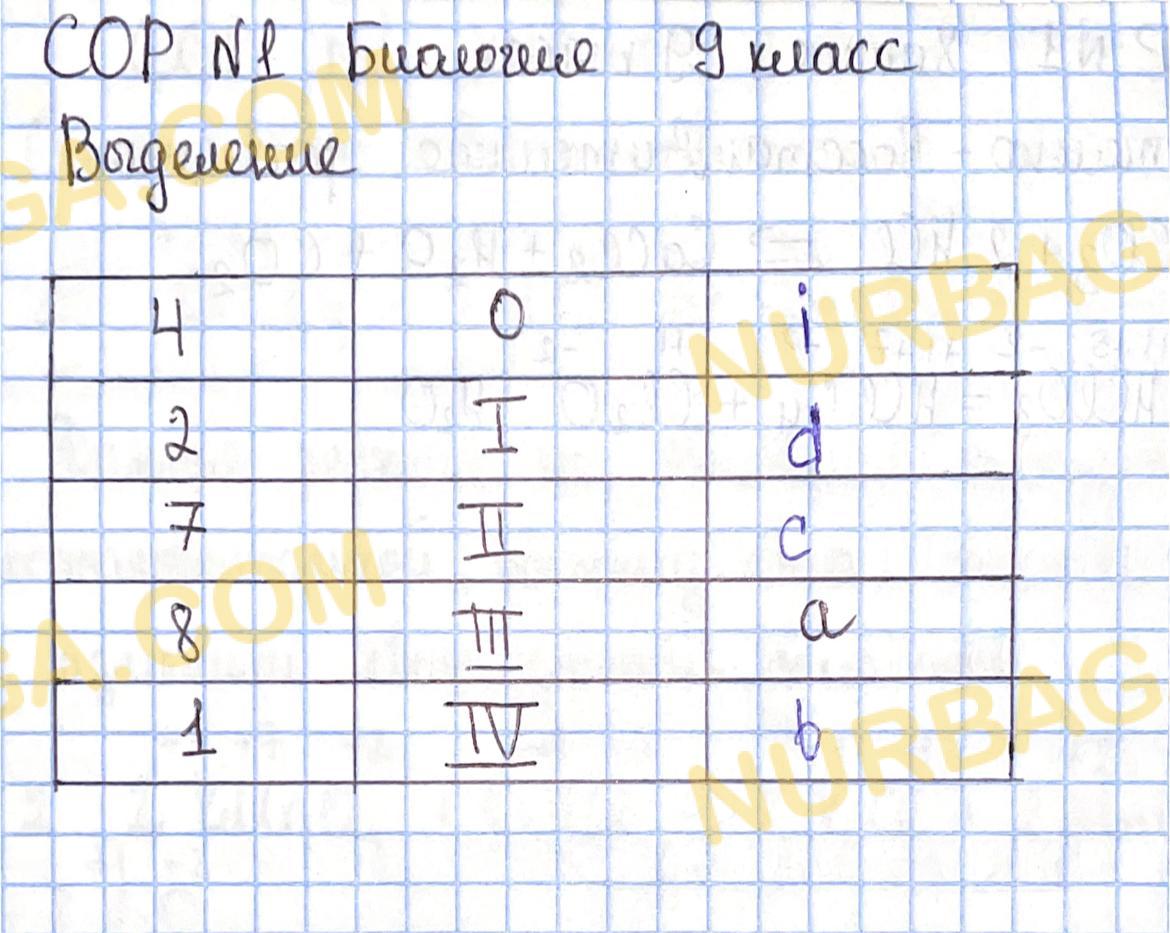 СОР №1 Биологие 9 класс
Выделение
4 0 i
2 I d
7 II c
8 III a
1 IV b
GA.COM
NURBAG
GA.COM
NURBAG